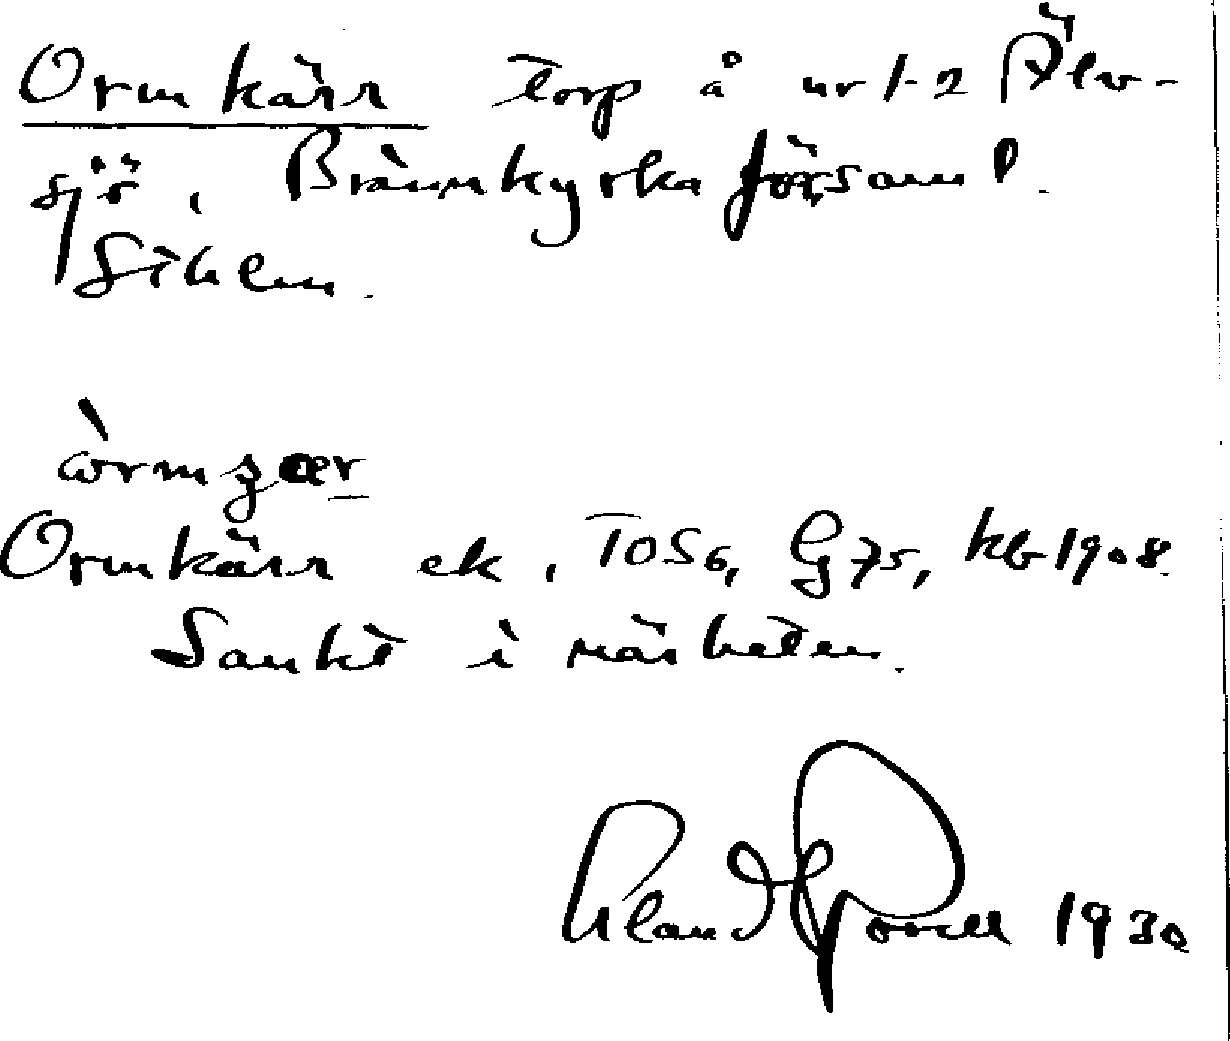 Ormkärr torp å nr 1-2 Älv-
sjö, Brännkyrka församl.
Sthlm.
Ormkärr ek, TOS6, G75, kb 1908.
Sankt i närheten.
1930